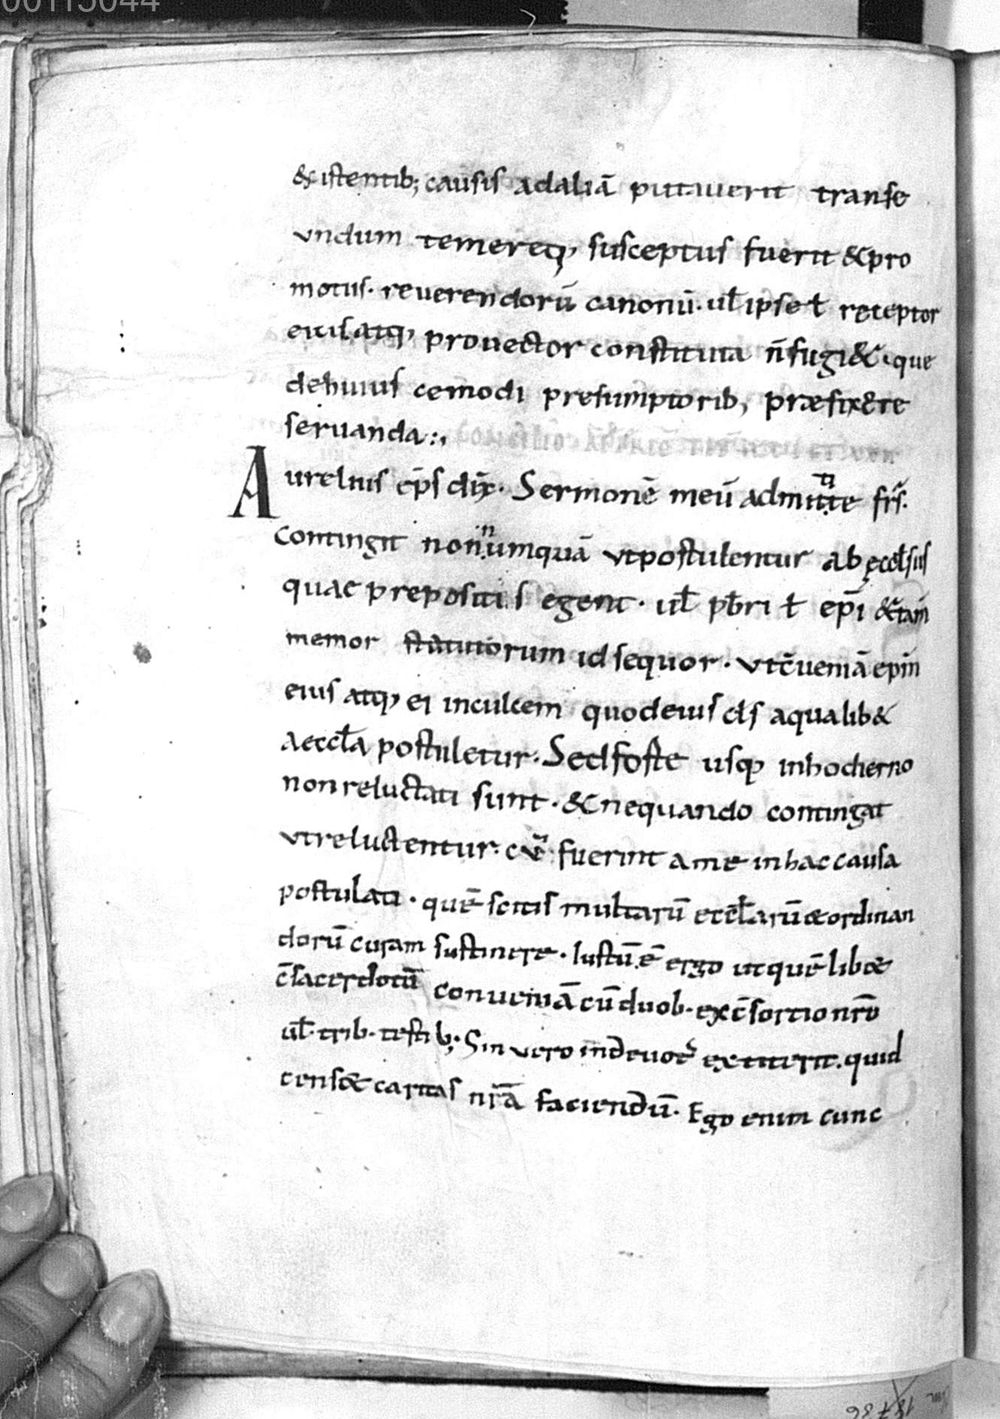 00115044
&istentib; causis adaliā putauerit transe
undum temereq; susceptus fuerit &pro
motus. reuerendorū canonū. ul̄ ipse ł receptor
eiuſ atq; prouector constituta n̄ fugi&. que
dehuius cemodi presumptorib; præfix&re
seruanda:,
Aurelius ep̄s dix̄. Sermonē meū admitte fr̄s.
Contingit nonnumquā ut postulentur ab ęccl̄siis
quae prepositis egent. ul̄ pb̄ri ł ep̄i &tam̄
memor statutorum id sequor. ut c̄ueniā ep̄m
eius atq; ei inculcem quodeius cl̄s aqualib&
aeccl̄a postuletur. Sed foste usq; inhodierno
non reluctati sunt. & nequando contingat
ut reluctentur. cū fuerint ame in hac causa
postulati. quē scitis multarū eccl̄arū & ordinan
dorū curam sustinere. Iustū ē ergo ut quē lib&
c̄sacerdotū conueniā cū duob. ex c̄sortio nr̄o
ul̄. trib. testib;. Sin uero indeuot; extiterit. quid
cens& caritas nr̄a faciendū. Ego enim cunc